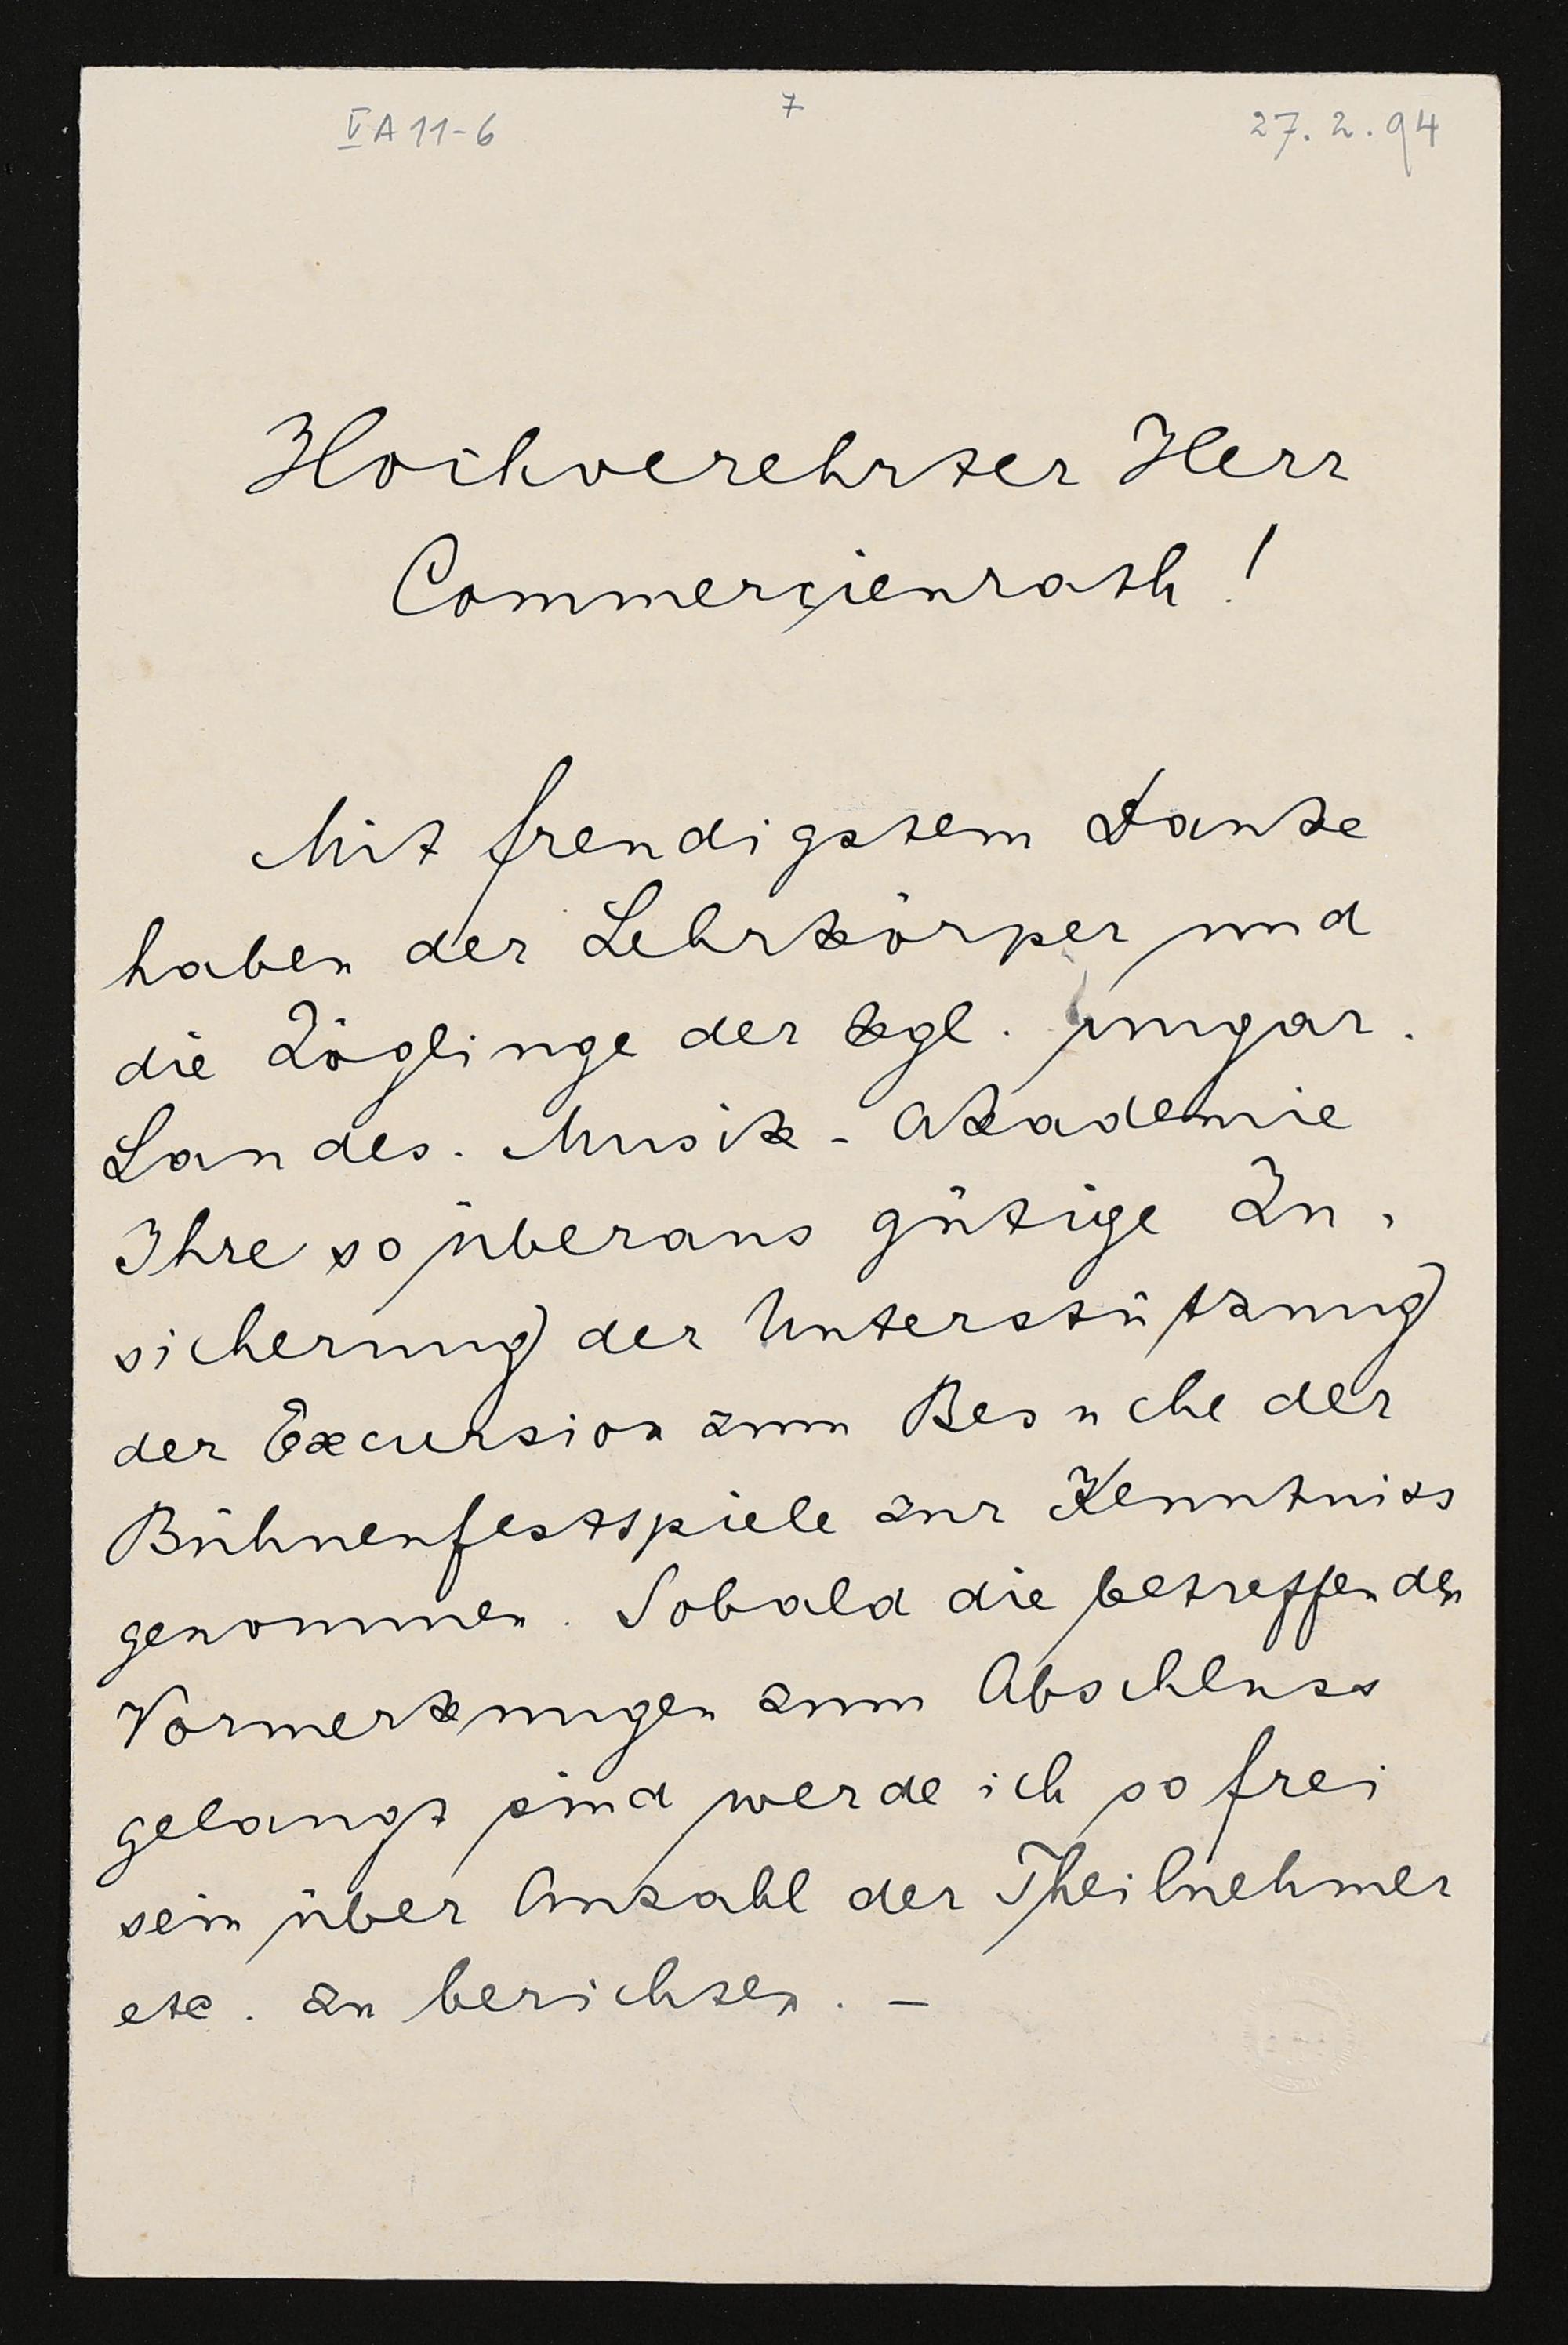 V A 11-6 7 27. 2. 94
Hochverehrter Herr
Commerçienrath !
Mit freudigstem Danke
haben der Lehrkörper und
die Zöglinge der kgl. ungar.
Landes-Musik-Akademie
Ihre so überaus gütige Zu-
sicherung der Unterstützung
der Excursion zum Besuche der
Bühnenfestspiele zur Kenntniss
genommen. Sobald die betreffenden
Vormerkungen zum Abschluss
gelangt sind werde ich so frei
sein über Anzahl der Theilnehmer
etc. zu berichten. –